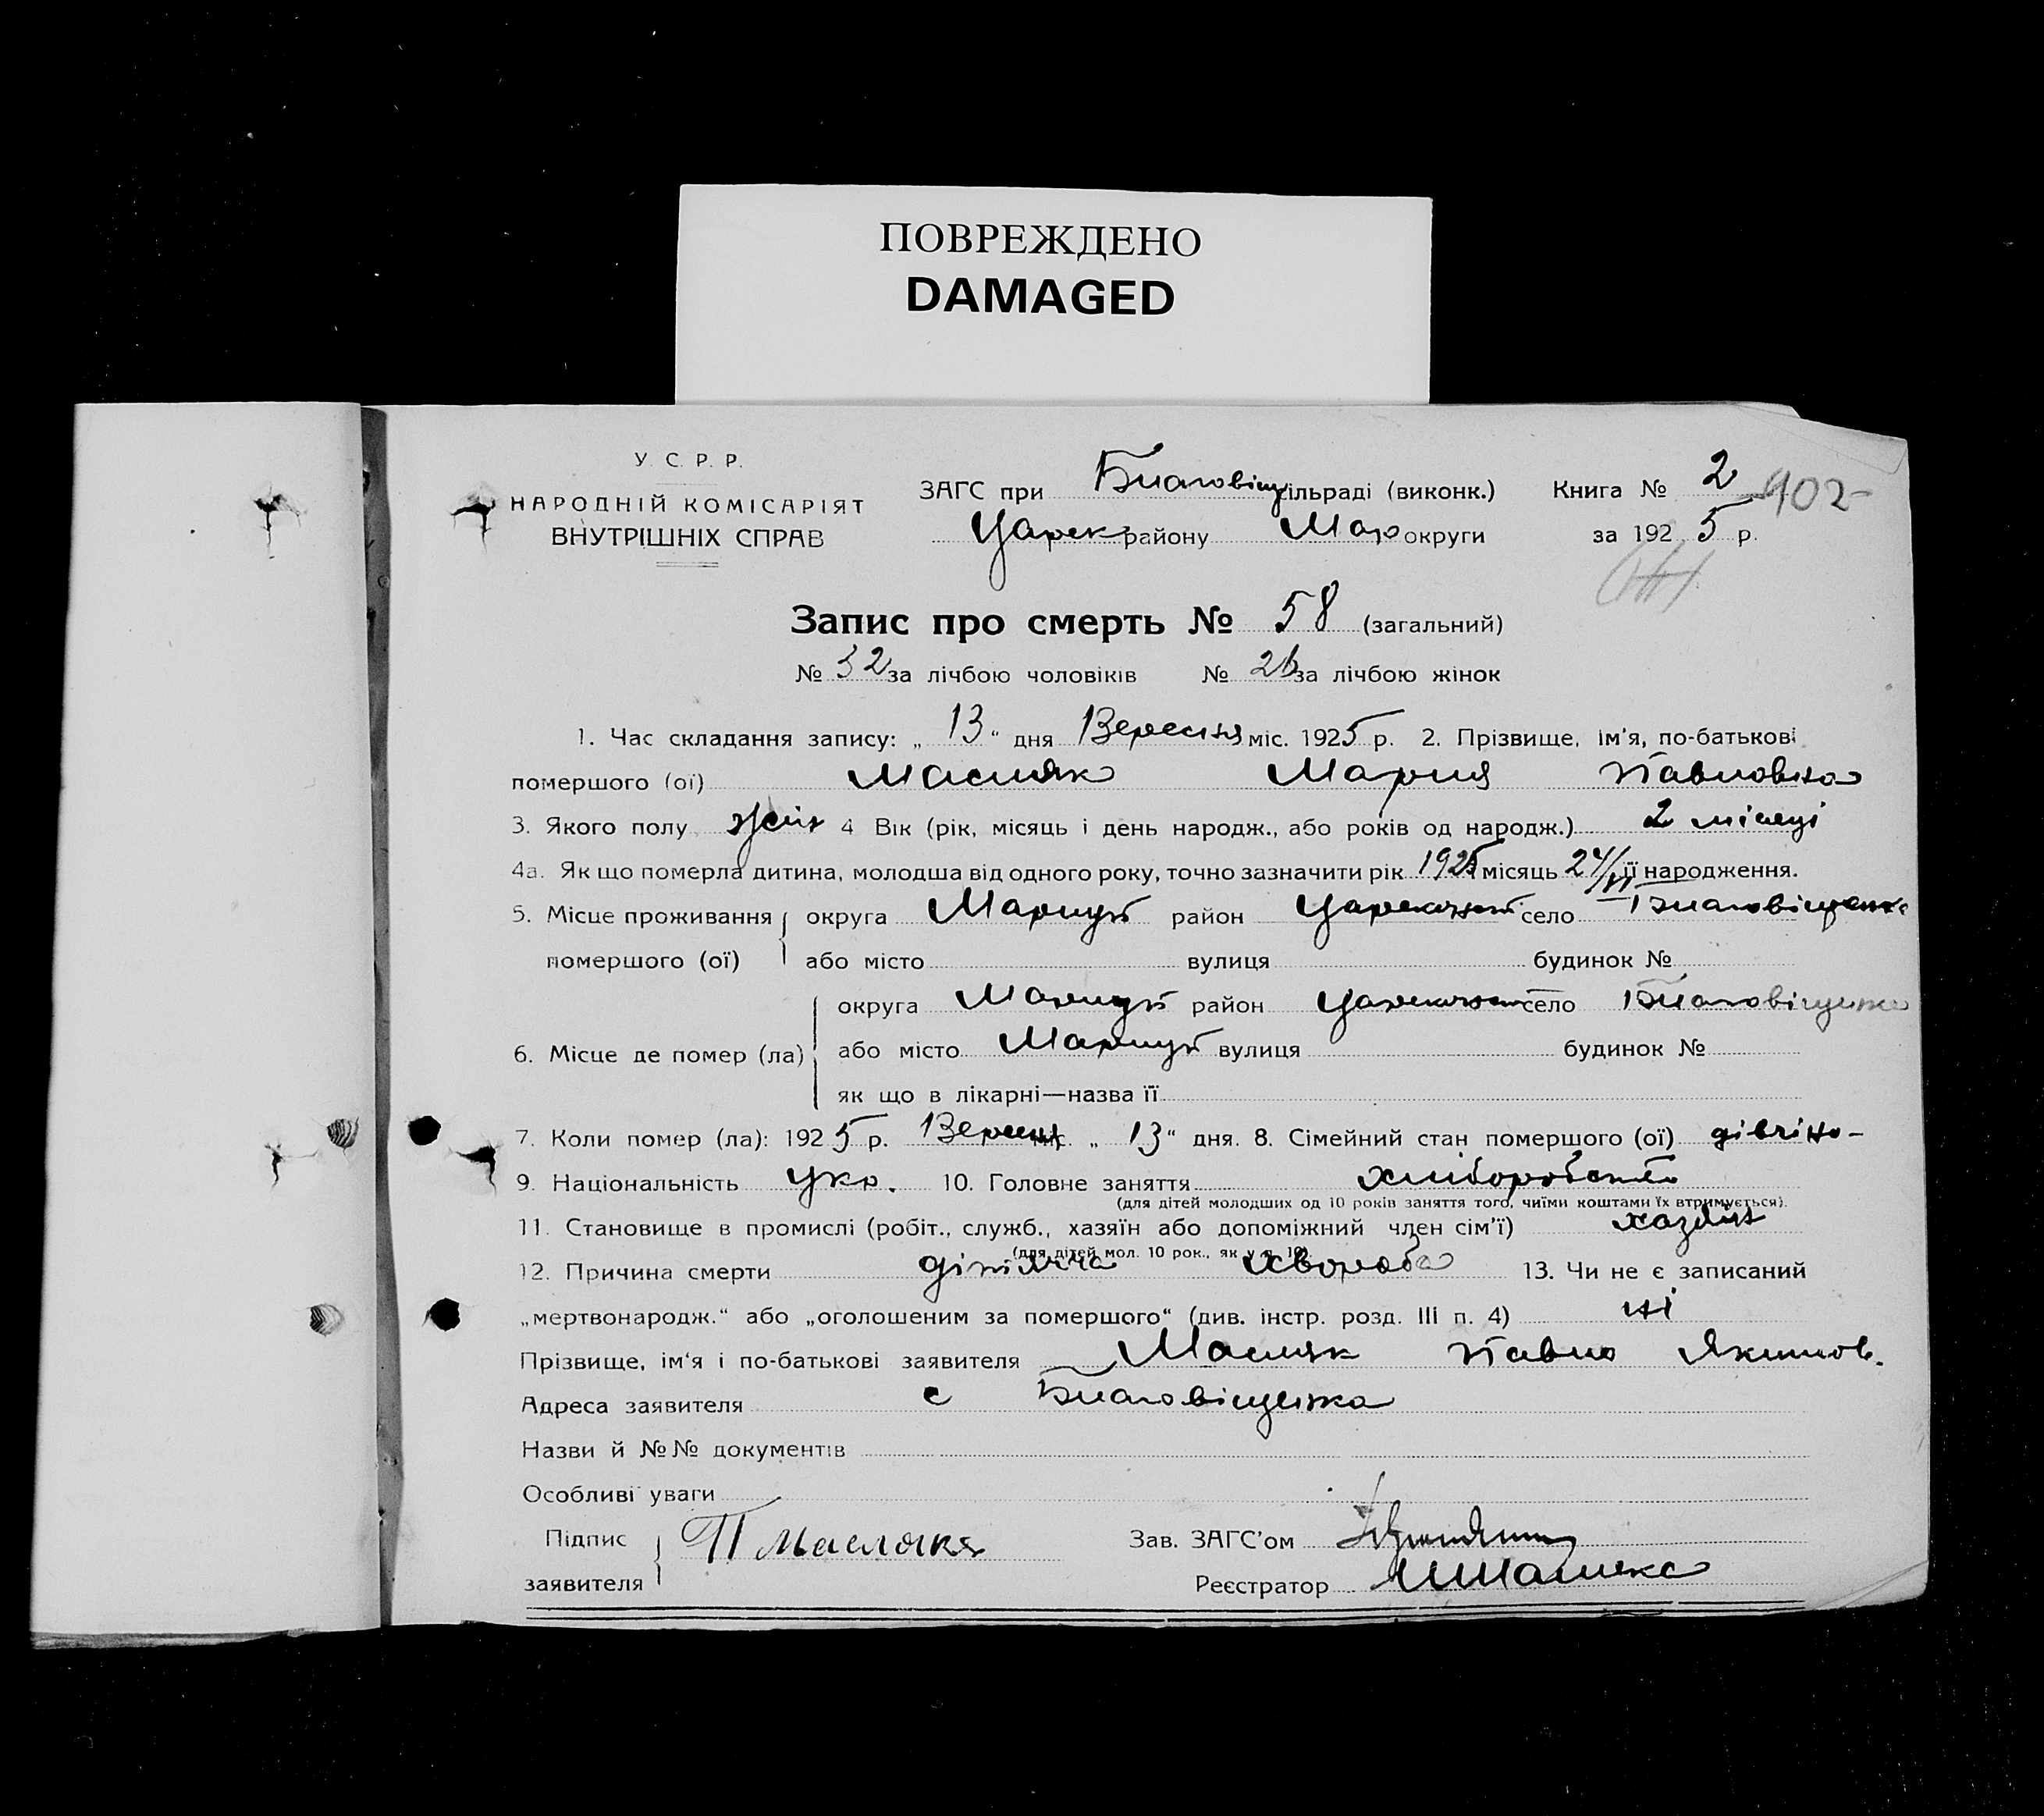 ПОВРЕЖДЕНО
DAMAGED
У. С. Р. Р.
НАРОДНІЙ КОМІСАРІЯТ
ВНУТРІШНІХ СПРАВ
ЗАГС при Благовіщ ільраді (виконк.)
Царек району Мар округи
Книга № 2
902-
за 1925 р.
Запис про смерть № 58 (загальний)
№ 32 за лічбою чоловіків № 26 за лічбою жінок
1. Час складання запису: „13“ дня Вересня міс. 1925 р. 2. Прізвище, ім'я, по-батькові
помершого (ої) Масляк Мария Павловна
3. Якого полу жін 4 Вік (рік, місяць і день народж., або років од народж.) 2 місяці
4а. Як що померла дитина, молодша від одного року, точно зазначити рік 1925 місяць 24/VI її народження.
5. Місце проживання округа Маріуп район Царекон село Благовіщенка
помершого (ої) або місто вулиця будинок №
округа Маріуп район Царекон село Благовіщенка
6. Місце де помер (ла) або місто Маріуп вулиця будинок №
як що в лікарні—назва її
7. Коли помер (ла): 1925 р. Вересня міс. „13“ дня. 8. Сімейний стан помершого (ої) дівчіна-
9. Національність укр. 10. Головне заняття хліборобство
(для дітей молодших од 10 років заняття того, чиїми коштами їх втримується).
11. Становище в промислі (робіт., служб., хазяїн або допоміжний член сім'ї) хазяїн
(для дітей мол. 10 рок., як у п. 10).
12. Причина смерти дітяча хвороба 13. Чи не є записаний
„мертвонародж.“ або „оголошеним за помершого“ (див. інстр. розд. III п. 4) ні
Прізвище, ім'я і по-батькові заявителя Масляк Павло Якимов.
Адреса заявителя с Благовіщенка
Назви й №№ документів
Особливі уваги
Підпис П Масляка Зав. ЗАГС'ом
заявителя Реєстратор